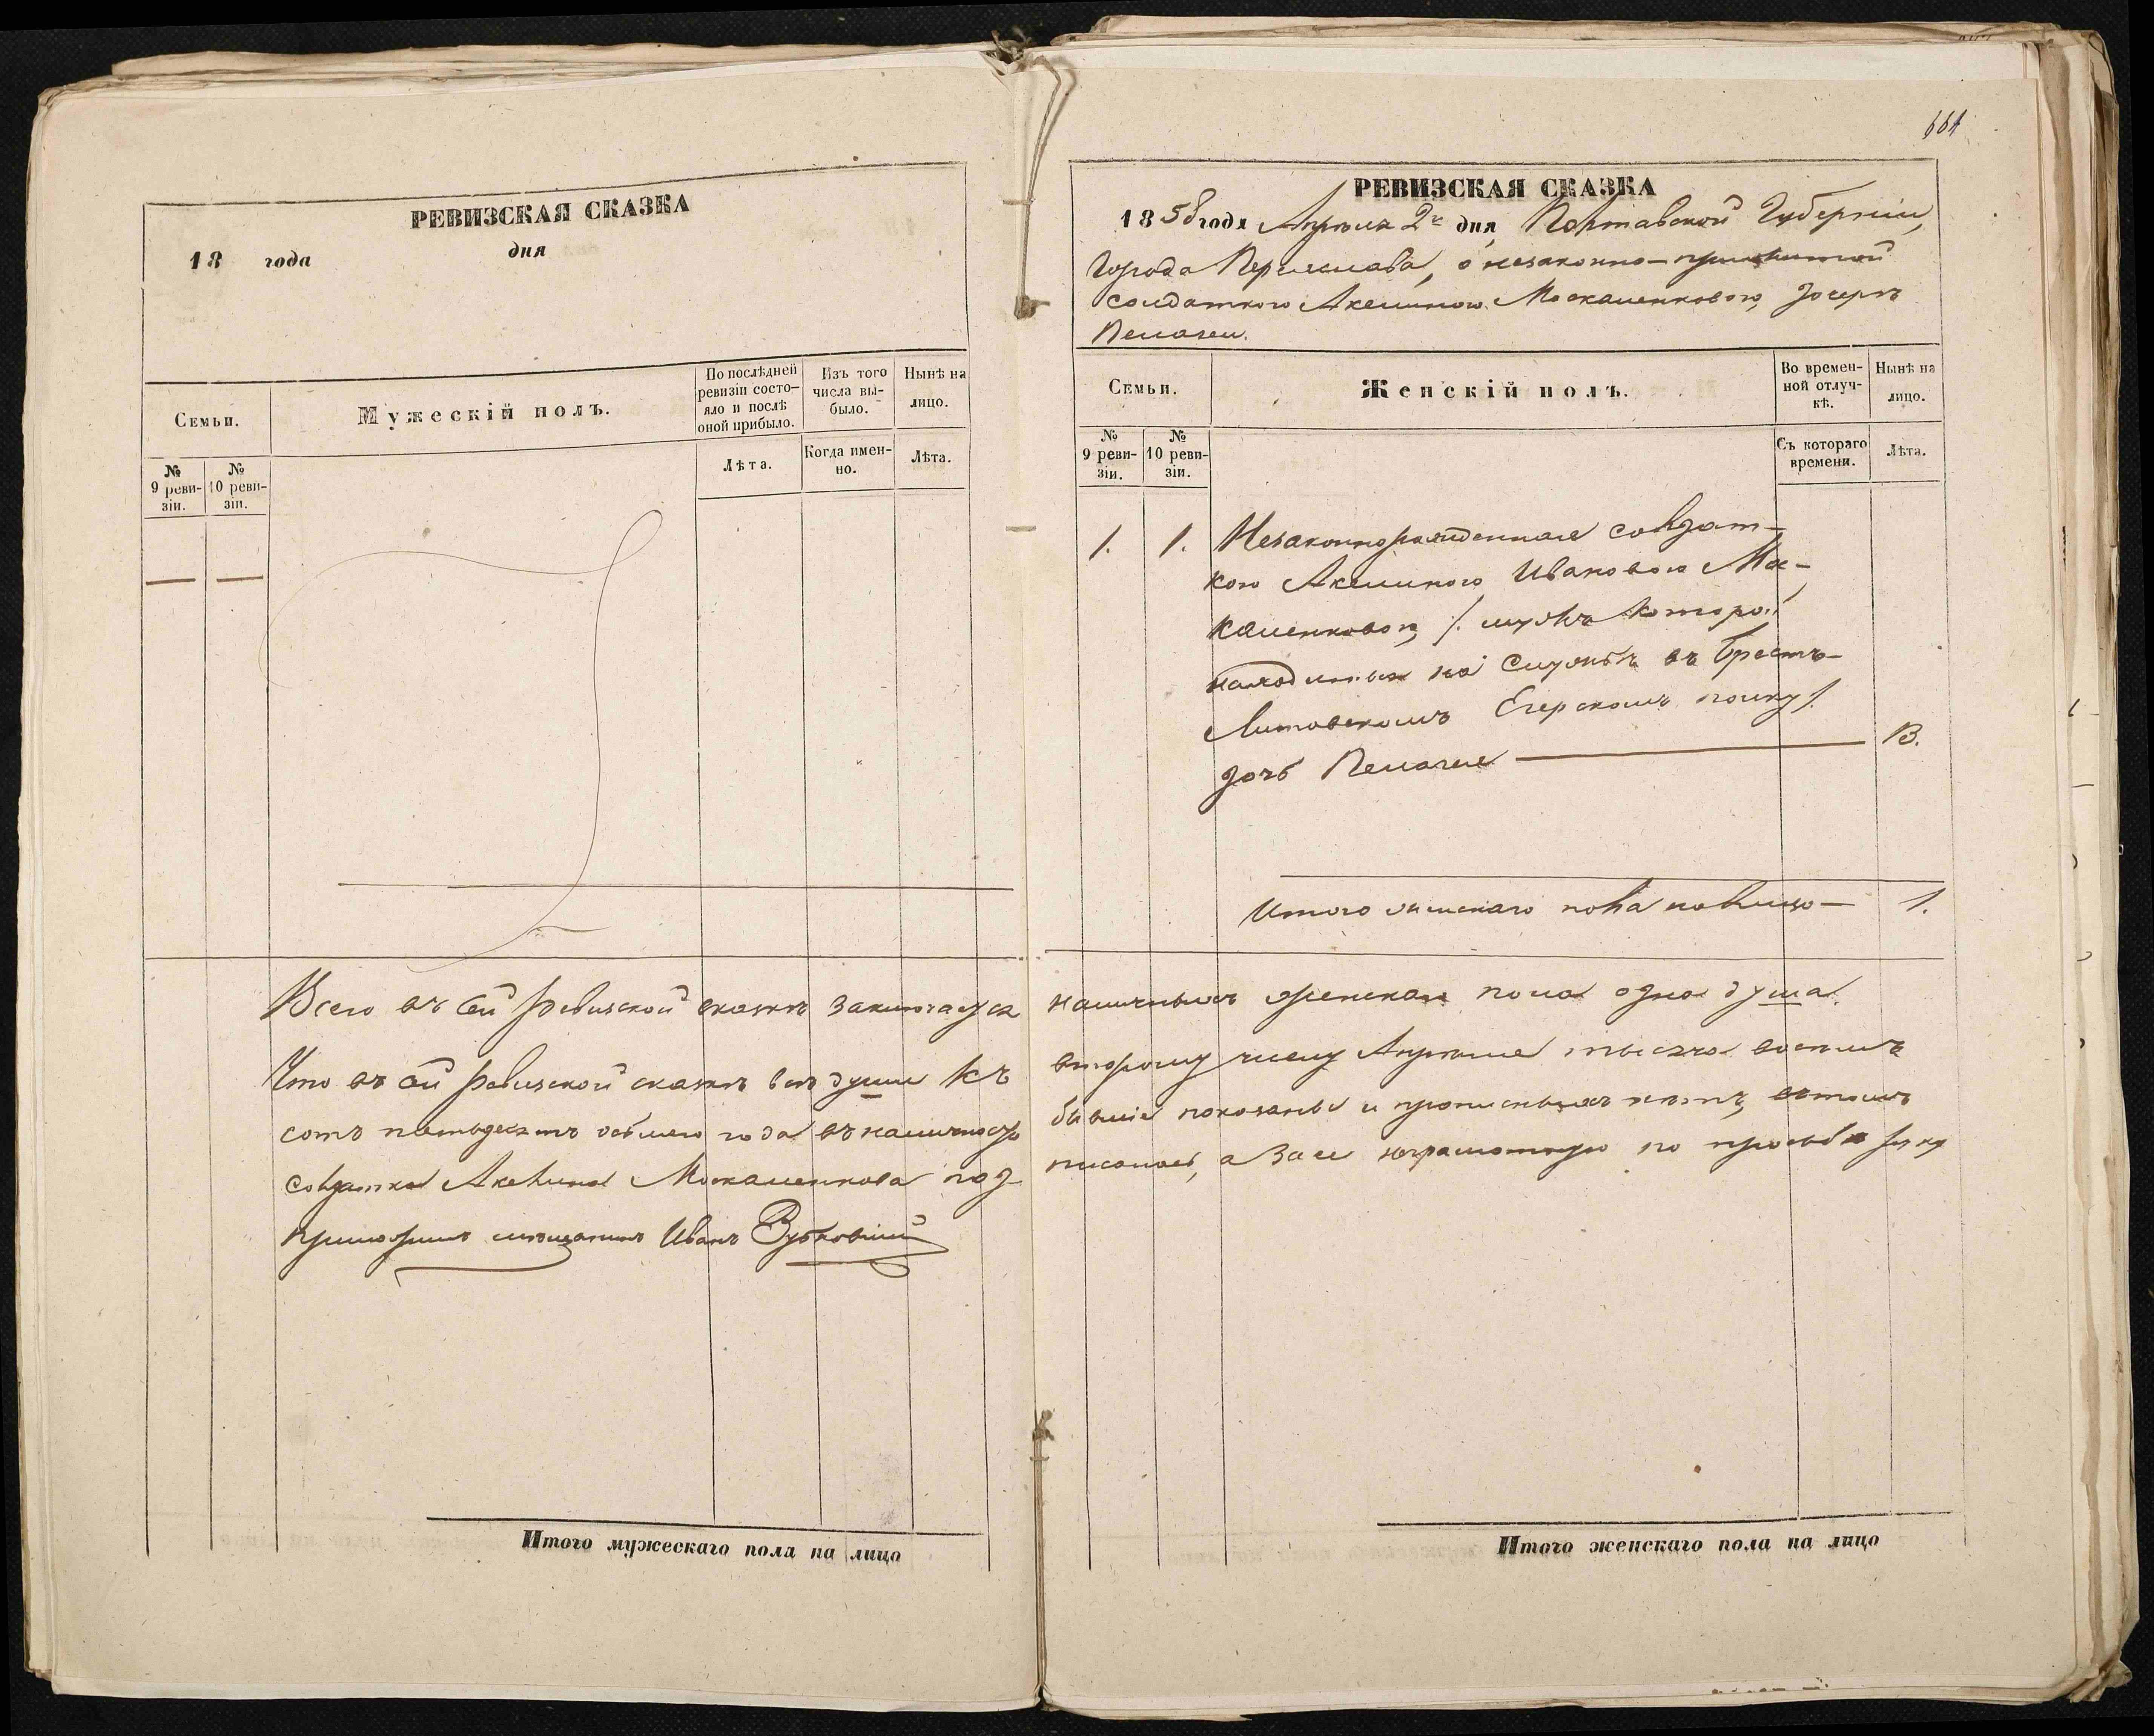 РЕВИЗСКАЯ СКАЗКА
18 года дня
Семьи.
Мужескій полъ.
По послѣдней ревизіи состояло и послѣ оной прибыло.
Изъ того числа выбыло.
Ныне на лицо.
№ 9 ревизіи.
№ 10 ревизіи.
Лѣта.
Когда именно.
Лѣта.
Всего въ сей ревизской сказкѣ заключается
Что въ сей ревизской сказкѣ всѣ души къ
сотъ пятьдесятъ осьмаго года въ наличности
солдатка Акелина Москаленкова под
приложилъ мѣщанинъ Иванъ Зубковскій
Итого мужескаго пола на лицо
661
РЕВИЗСКАЯ СКАЗКА
1858 года Апрѣля 2 дня, Полтавской Губерніи,
Города Переяслава, о незаконно-прижитой
солдаткою Акелиною Москаленковою, дочерѣ
Пелагеи.
Семьи.
Женскій полъ.
Во временной отлучкѣ.
Нынѣ на лицо.
№ 9 ревизіи.
№ 10 ревизіи.
Съ котораго времени.
Лѣта.
1. 1. Незаконнорожденная солдат-
кою Акелиною Ивановою Мос-
каленковою, /. мужъ которой
находится на службѣ въ Брестъ-
Литовскомъ Егерскомъ полку /.
дочь Пелагея — 13.
Итого женскаго пола налицо — 1.
наличныхъ женская пола одна душа.
второму числу Апрѣля тысяча восемь
бывшіе показаны и прописныхъ нѣтъ, въ томъ
писалась, а за ее неграмотную по просьбѣ руку
Итого женскаго пола на лицо